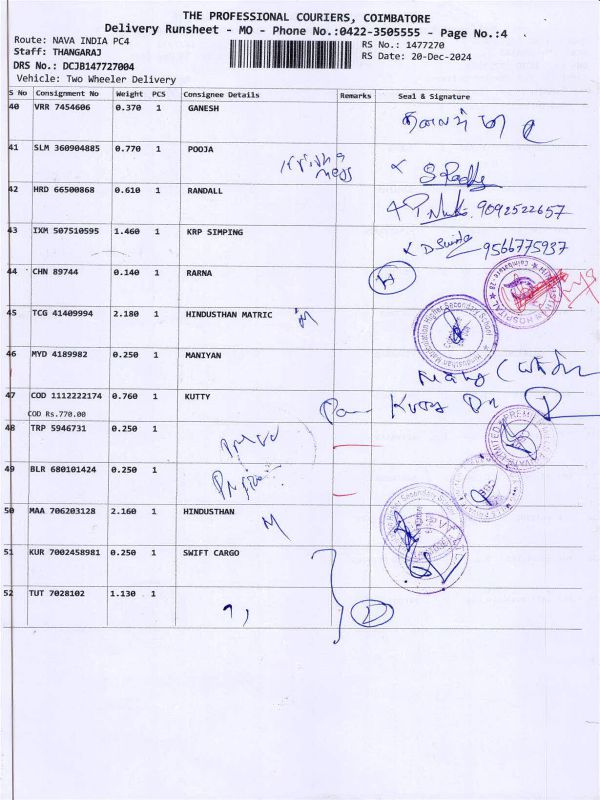 THE PROFESSIONAL COURIERS, COIMBATORE
Delivery Runsheet - MO - Phone No.:0422-3505555 - Page No.:4
Route: NAVA INDIA PC4
RS No.: 1477270
Staff: THANGARAJ
RS Date: 20-Dec-2024
DRS No.: DCJB147727004
Vehicle: Two Wheeler Delivery
S No Consignment No Weight PCS Consignee Details Remarks Seal & Signature
40 VRR 7454606 0.370 1 GANESH
41 SLM 360904885 0.770 1 POOJA
42 HRD 66500868 0.610 1 RANDALL 9092522657
43 IXM 507510595 1.460 1 KRP SIMPING 9566775937
44 CHN 89744 0.140 1 RARNA H
45 TCG 41409994 2.180 1 HINDUSTHAN MATRIC M
Hindusthan Matriculation Higher Secondary School
46 MYD 4189982 0.250 1 MANIYAN
47 COD 1112222174 0.760 1 KUTTY
COD Rs.770.00
48 TRP 5946731 0.250 1
49 BLR 680101424 0.250 1
50 MAA 706203128 2.160 1 HINDUSTHAN M
51 KUR 7002458981 0.250 1 SWIFT CARGO
52 TUT 7028102 1.130 1 D